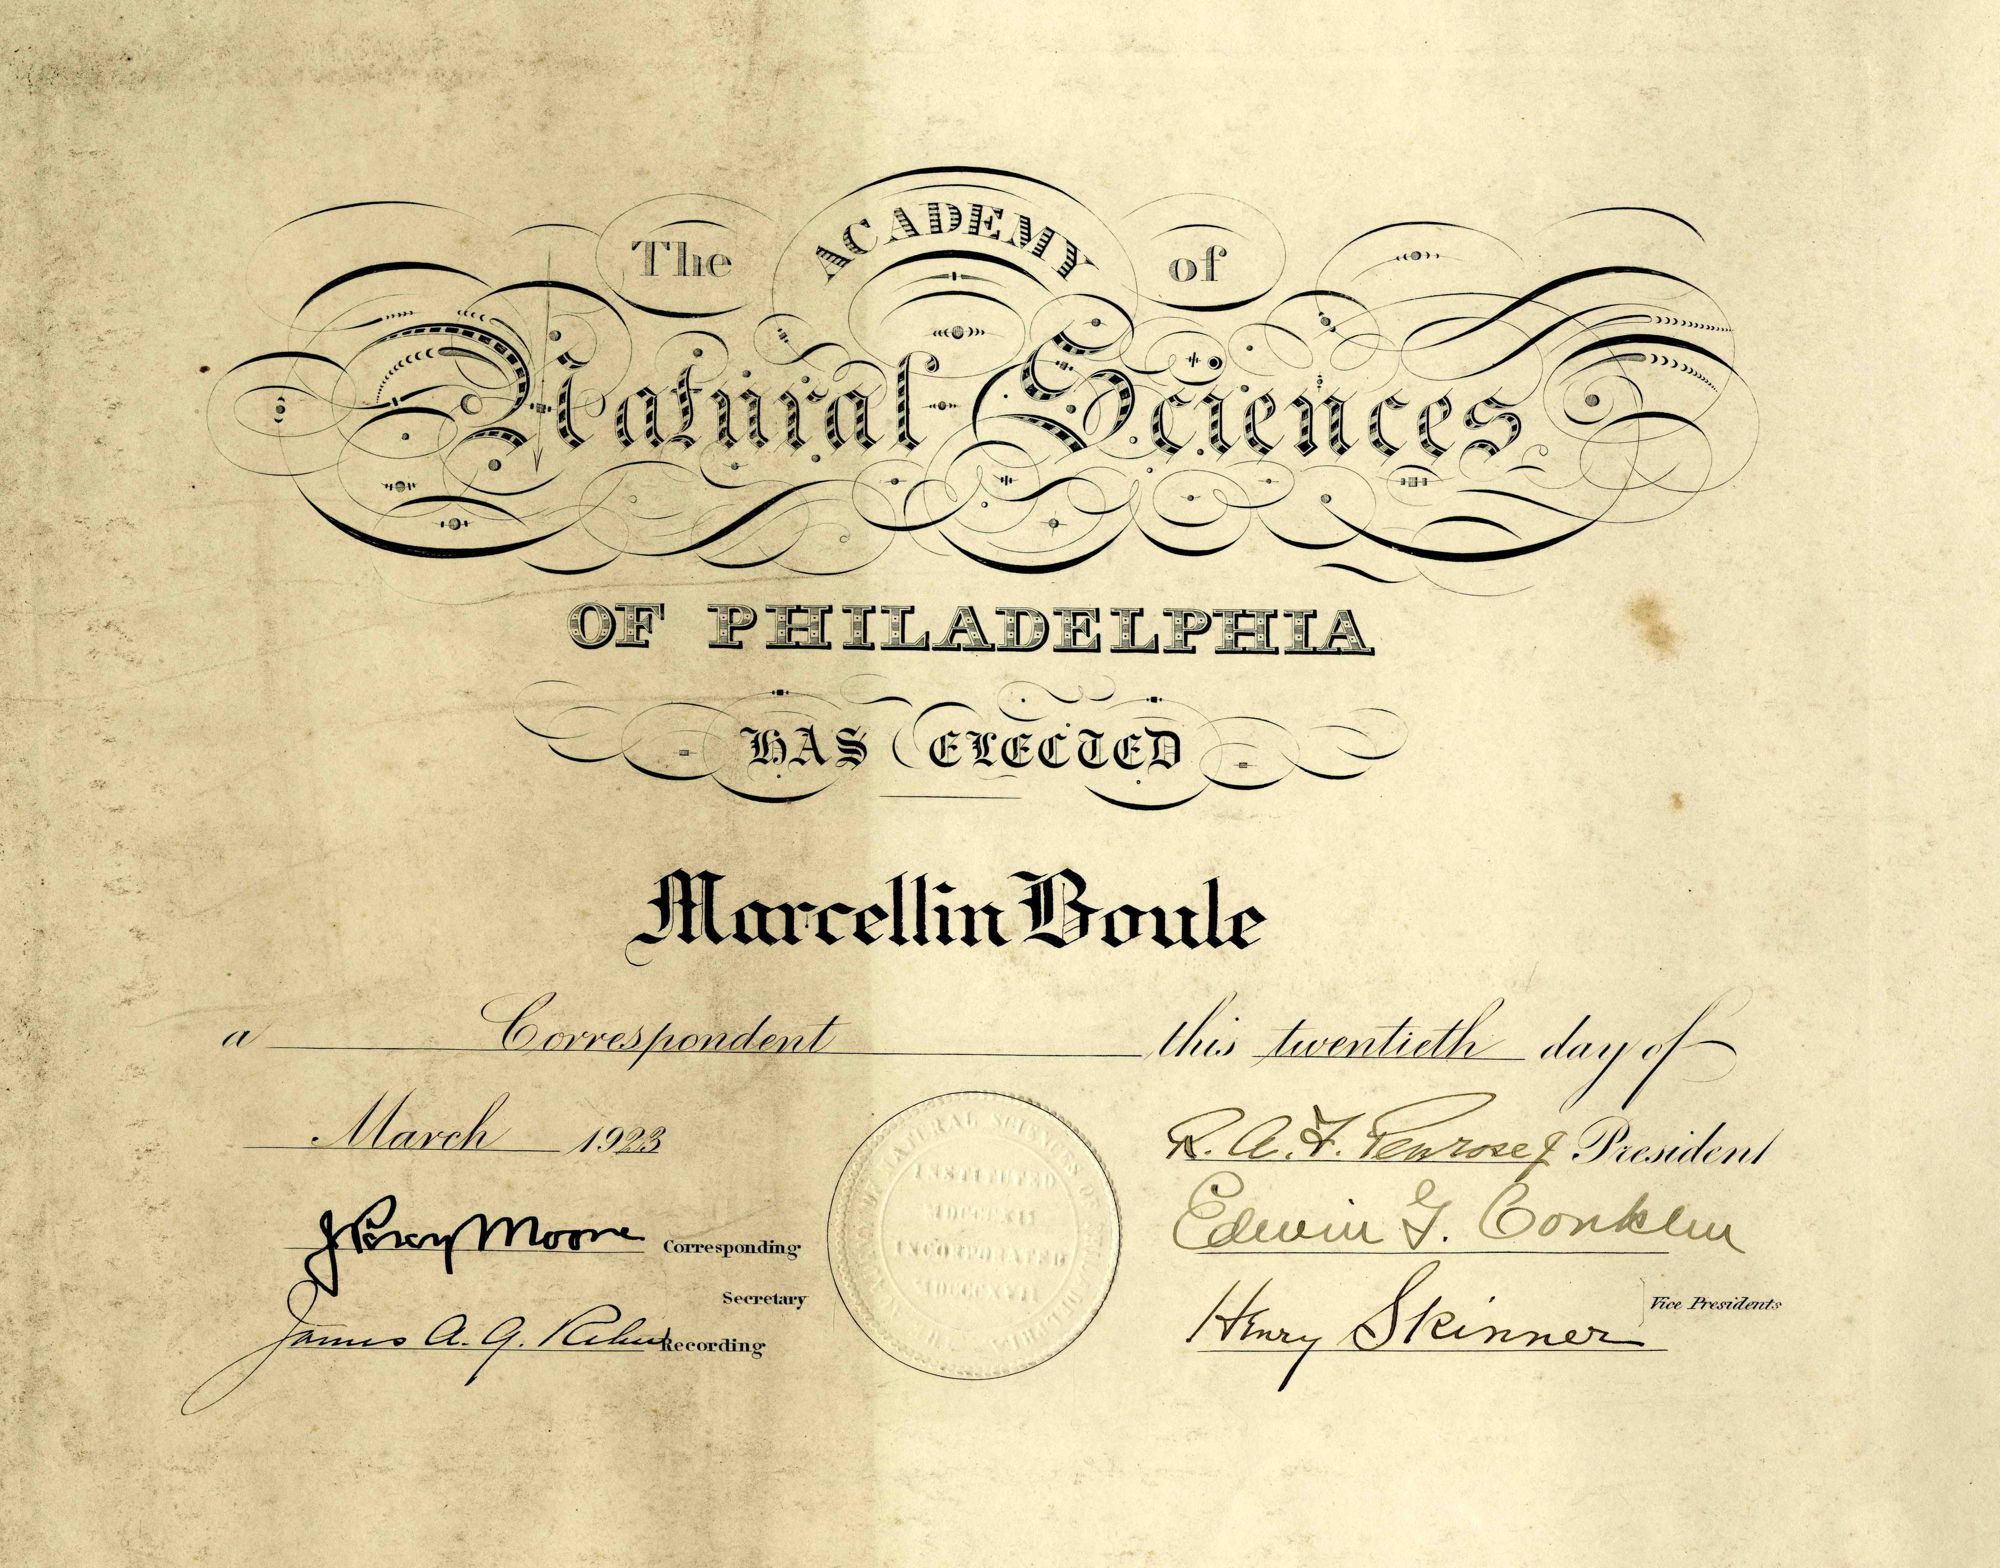 The ACADEMY of
Natural Sciences
OF PHILADELPHIA
HAS ELECTED
Marcellin Boule
a Correspondent this twentieth day of
March 1923
R. A. F. Penrose Jr President
J Percy Moore Corresponding
Edwin G. Conklin
Secretary
Henry Skinner Vice Presidents
James A. G. Rehn Recording
NATURAL SCIENCES OF
INSTITUTED
MDCCCXII
INCORPORATED
MDCCCXVII